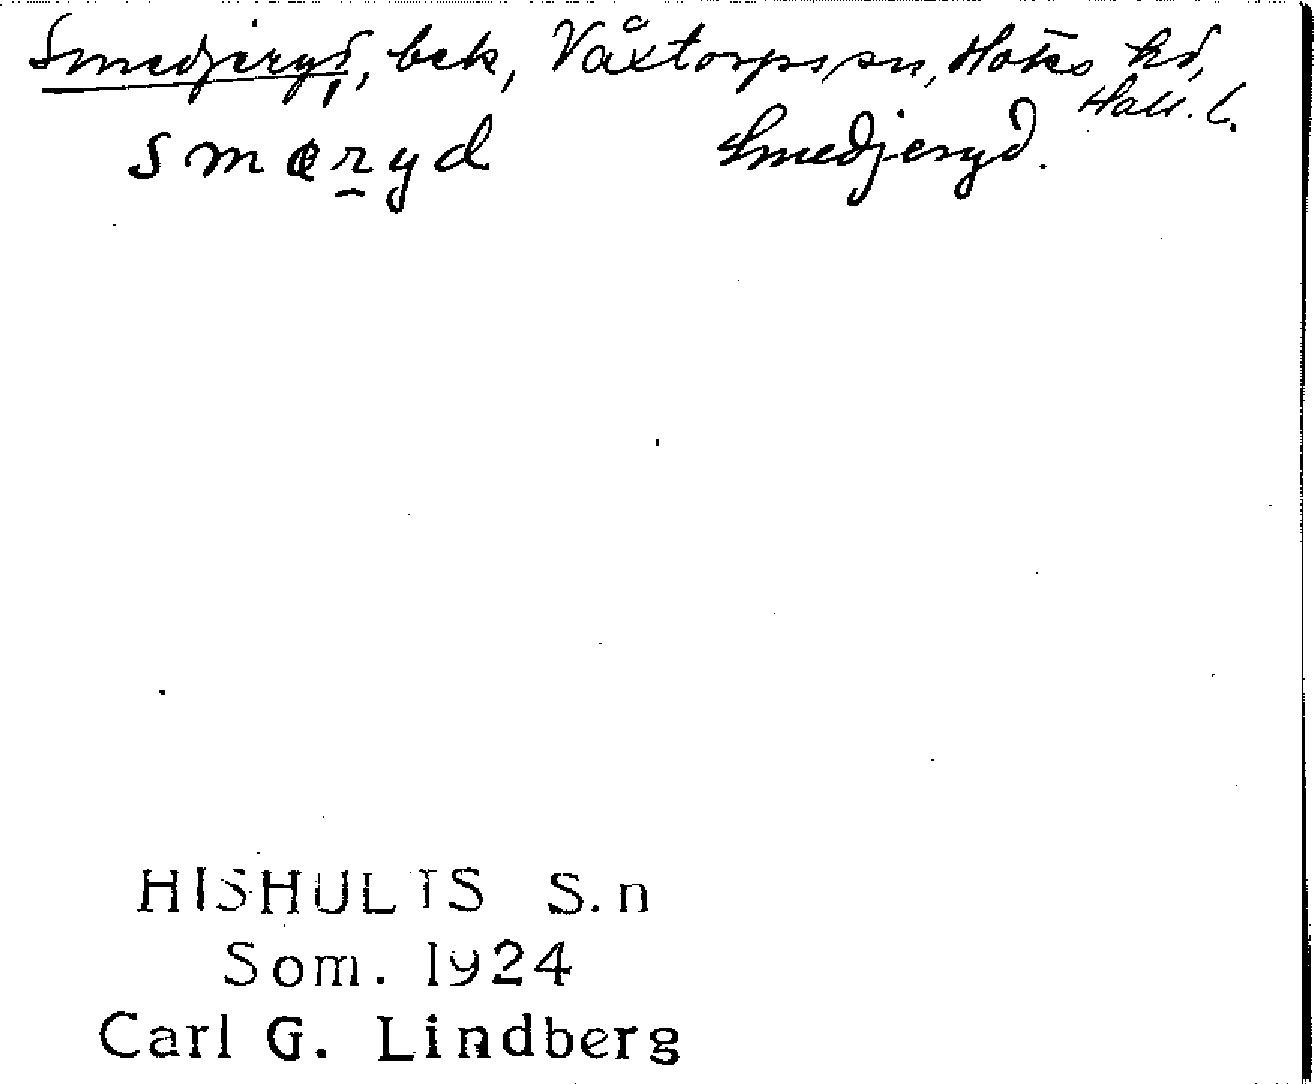 Smedjeryd, bek, Våxtorps sn, Höks hd,
Hall. l.
smeryd Smedjeryd.
HISHULTS S.n
Som. 1924
Carl G. Lindberg